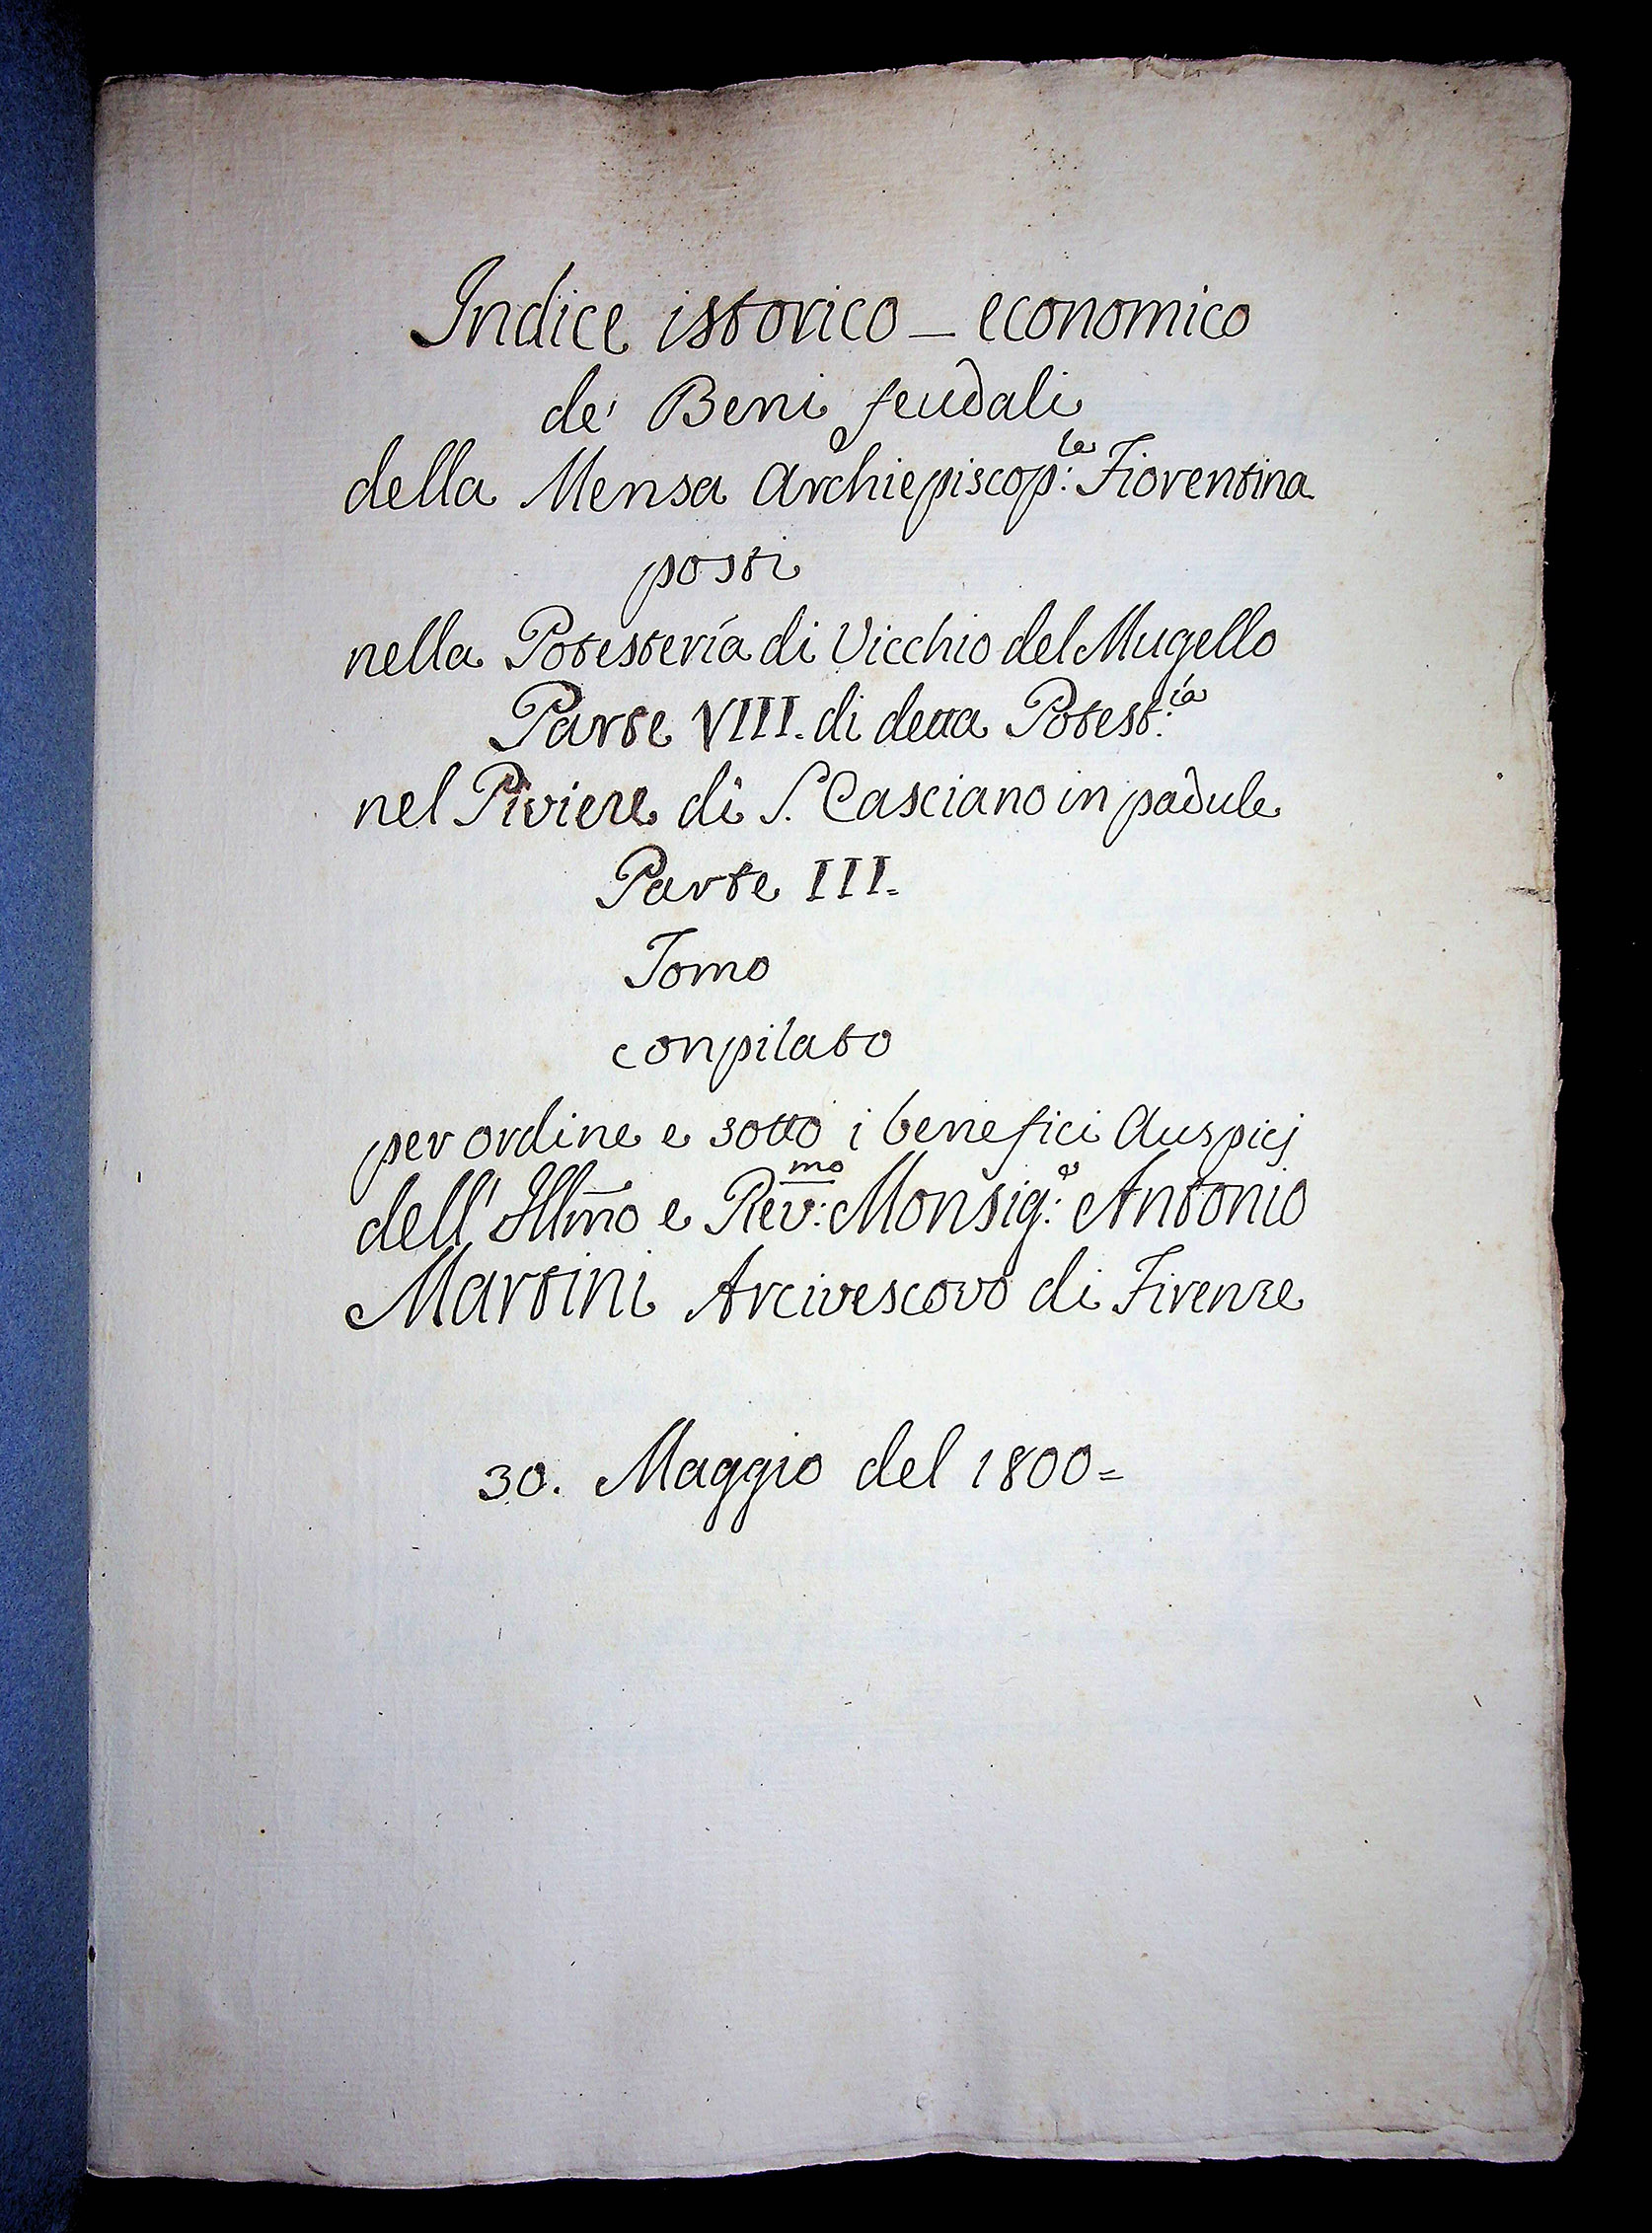 Indice istorico - economico
de' Beni feudali
della Mensa Archiepiscop:le Fiorentina
posti
nella Potestería di Vicchio del Mugello
Parte VIII. di detta Potest:ía
nel Piviere di S. Casciano in padule
Parte III.=
Tomo
conpilato
per ordine e sotto i benefici Auspicj
dell' Illmo e Rev:mo Monsig:e Antonio
Martini Arcivescovo di Firenze
30. Maggio del 1800=